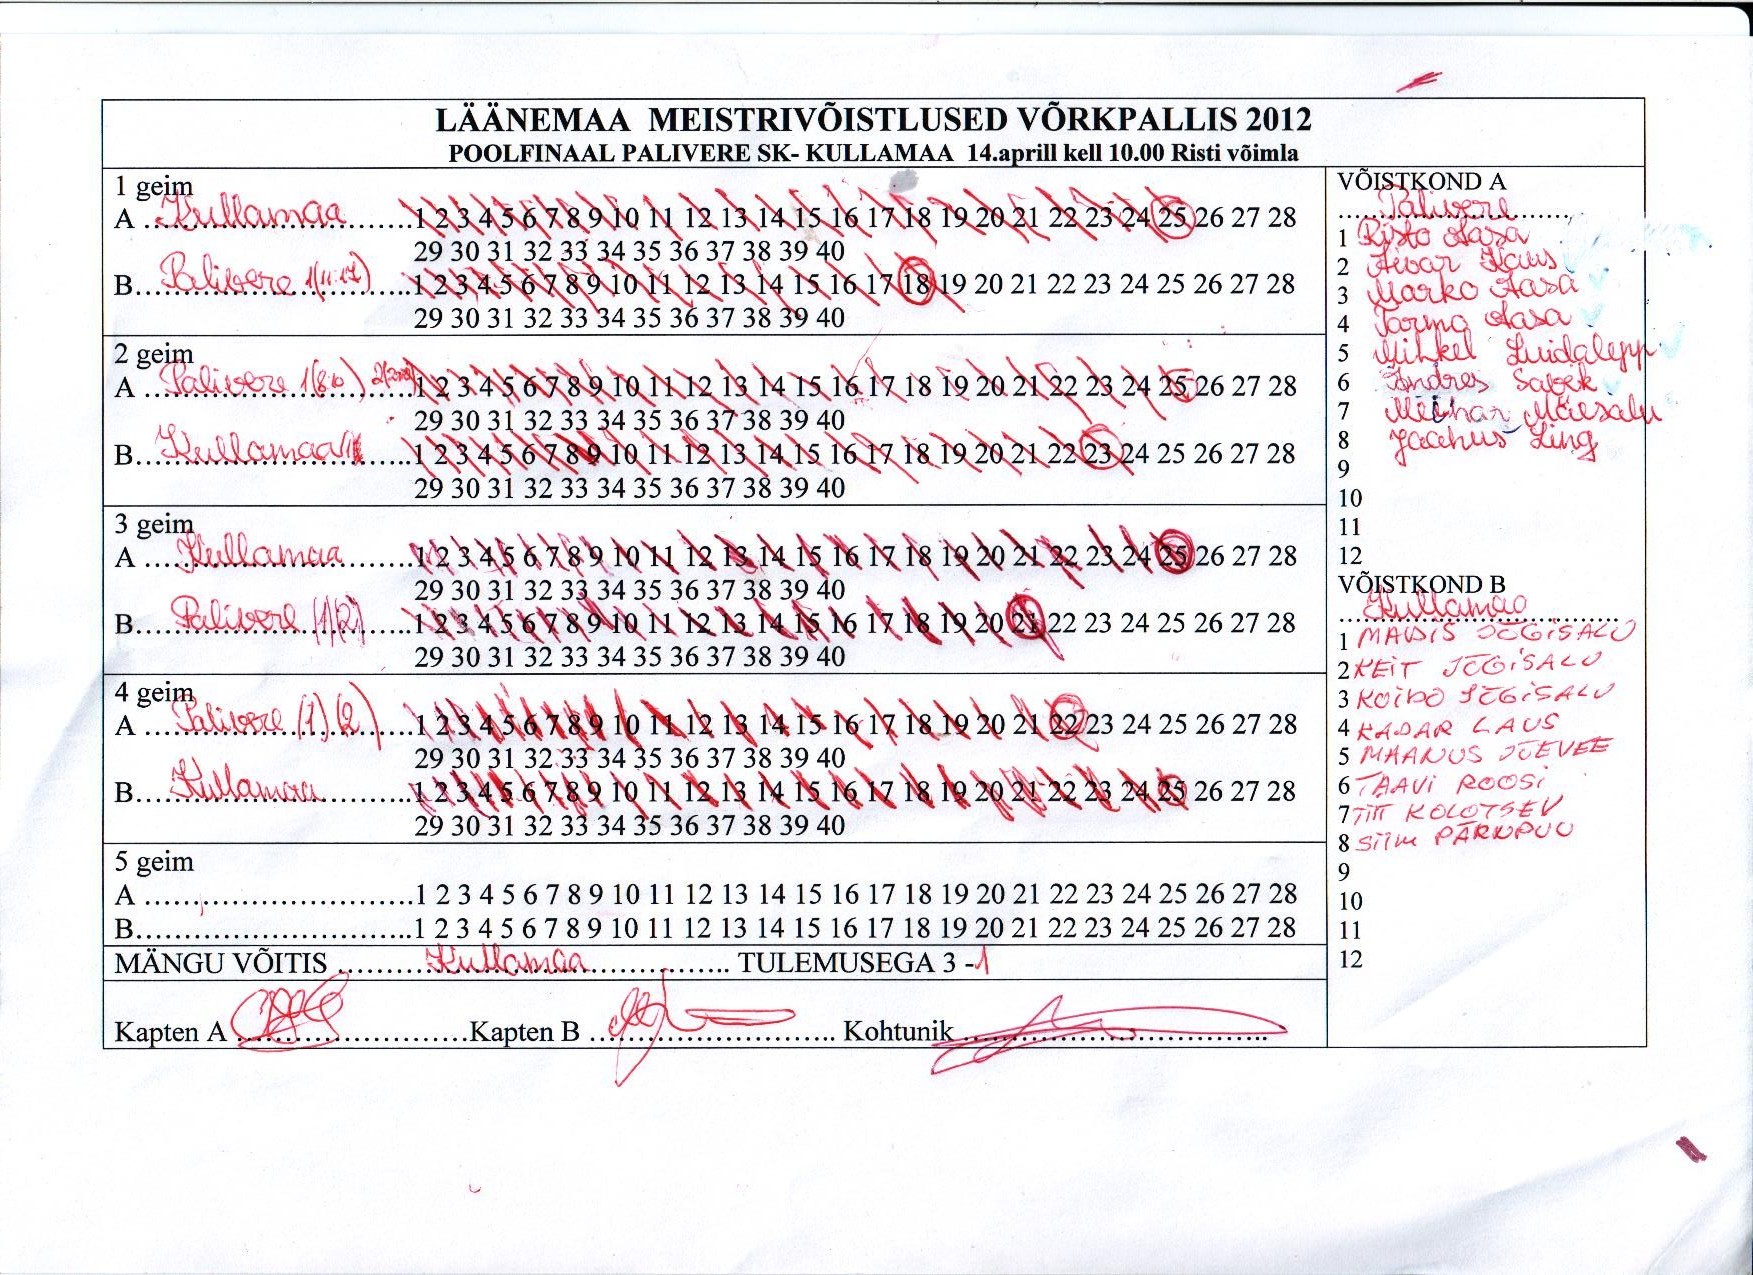 LÄÄNEMAA MEISTRIVÕISTLUSED VÕRKPALLIS 2012
POOLFINAAL PALIVERE SK- KULLAMAA 14.aprill kell 10.00 Risti võimla
1 geim
A .Kullamaa 1 2 3 4 5 6 7 8 9 10 11 12 13 14 15 16 17 18 19 20 21 22 23 24 25 26 27 28
29 30 31 32 33 34 35 36 37 38 39 40
B Palivere 1 2 3 4 5 6 7 8 9 10 11 12 13 14 15 16 17 18 19 20 21 22 23 24 25 26 27 28
29 30 31 32 33 34 35 36 37 38 39 40
2 geim
A Palivere 1 2 3 4 5 6 7 8 9 10 11 12 13 14 15 16 17 18 19 20 21 22 23 24 25 26 27 28
29 30 31 32 33 34 35 36 37 38 39 40
B Kullamaa 1 2 3 4 5 6 7 8 9 10 11 12 13 14 15 16 17 18 19 20 21 22 23 24 25 26 27 28
29 30 31 32 33 34 35 36 37 38 39 40
3 geim
A Kullamaa 1 2 3 4 5 6 7 8 9 10 11 12 13 14 15 16 17 18 19 20 21 22 23 24 25 26 27 28
29 30 31 32 33 34 35 36 37 38 39 40
B Palivere (1)(2) 1 2 3 4 5 6 7 8 9 10 11 12 13 14 15 16 17 18 19 20 21 22 23 24 25 26 27 28
29 30 31 32 33 34 35 36 37 38 39 40
4 geim
A Palivere (1)(2) 1 2 3 4 5 6 7 8 9 10 11 12 13 14 15 16 17 18 19 20 21 22 23 24 25 26 27 28
29 30 31 32 33 34 35 36 37 38 39 40
B Kullamaa 1 2 3 4 5 6 7 8 9 10 11 12 13 14 15 16 17 18 19 20 21 22 23 24 25 26 27 28
29 30 31 32 33 34 35 36 37 38 39 40
5 geim
A 1 2 3 4 5 6 7 8 9 10 11 12 13 14 15 16 17 18 19 20 21 22 23 24 25 26 27 28
B 1 2 3 4 5 6 7 8 9 10 11 12 13 14 15 16 17 18 19 20 21 22 23 24 25 26 27 28
MÄNGU VÕITIS Kullamaa TULEMUSEGA 3 -1
Kapten A Kapten B Kohtunik
VÕISTKOND A
Palivere
1 Risto Aasa
2 Aivar Haus
3 Marko Aasa
4 Tarmo Aasa
5 Mihkel Luidalepp
6 Andres Sapek
7 Meihar Mäesalu
8 Jaanus Ling
9
10
11
12
VÕISTKOND B
Kullamaa
1 MADIS JÕGISALU
2 KEIT JÕGISALU
3 KOIDO JÕGISALU
4 KADAR LAUS
5 MAANUS JÕEVEE
6 TAAVI ROOSI
7 TIIT KOLOTSEV
8 SIIM PÄRNPUU
9
10
11
12